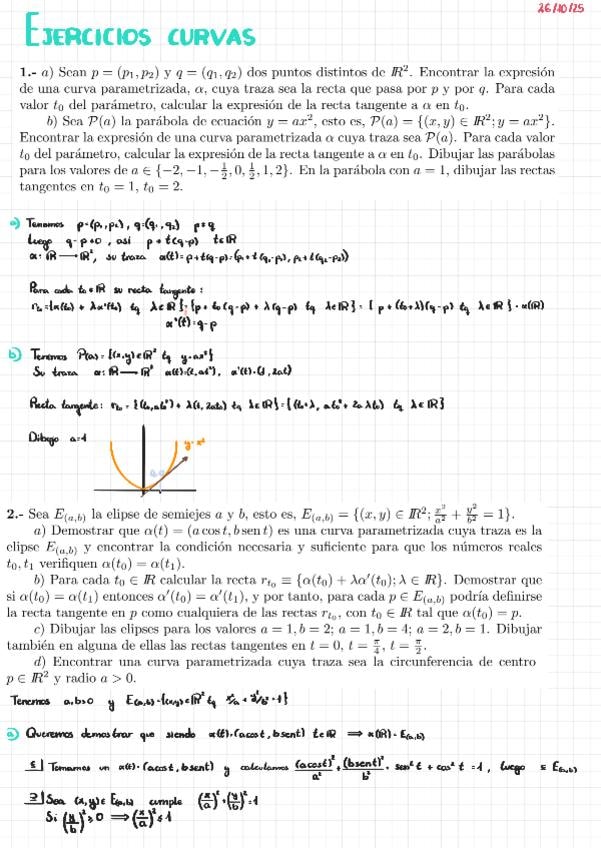 26/10/25
EJERCICIOS CURVAS
1.- a) Sean p = (p₁, p₂) y q = (q₁, q₂) dos puntos distintos de ℝ². Encontrar la expresión
de una curva parametrizada, α, cuya traza sea la recta que pasa por p y por q. Para cada
valor t₀ del parámetro, calcular la expresión de la recta tangente a α en t₀.
b) Sea P(a) la parábola de ecuación y = ax², esto es, P(a) = {(x, y) ∈ ℝ²; y = ax²}.
Encontrar la expresión de una curva parametrizada α cuya traza sea P(a). Para cada valor
t₀ del parámetro, calcular la expresión de la recta tangente a α en t₀. Dibujar las parábolas
para los valores de a ∈ {−2, −1, −½, 0, ½, 1, 2}. En la parábola con a = 1, dibujar las rectas
tangentes en t₀ = 1, t₀ = 2.
a) Tenemos p=(p₁,p₂), q=(q₁,q₂) p≠q
Luego q-p≠0, así p+t(q-p) t∈ℝ
α: ℝ → ℝ², su traza α(t)=p+t(q-p)=(p₁+t(q₁-p₁), p₂+t(q₂-p₂))
Para cada t₀∈ℝ su recta tangente:
r_t₀={α(t₀) + λα'(t₀) tq λ∈ℝ}={p+t₀(q-p)+λ(q-p) tq λ∈ℝ}={p+(t₀+λ)(q-p) tq λ∈ℝ}=α(ℝ)
α'(t)=q-p
b) Tenemos P(a)={(x,y)∈ℝ² tq y=ax²}
Su traza α: ℝ → ℝ² α(t)=(t,at²), α'(t)=(1,2at)
Recta tangente: r_t₀={(t₀,at₀²)+λ(1,2at₀) tq λ∈ℝ}={(t₀+λ, at₀²+2aλt₀) tq λ∈ℝ}
Dibujo a=1
y=x²
2.- Sea E₍a,b₎ la elipse de semiejes a y b, esto es, E₍a,b₎ = {(x, y) ∈ ℝ²; x²/a² + y²/b² = 1}.
a) Demostrar que α(t) = (a cos t, b sen t) es una curva parametrizada cuya traza es la
elipse E₍a,b₎ y encontrar la condición necesaria y suficiente para que los números reales
t₀, t₁ verifiquen α(t₀) = α(t₁).
b) Para cada t₀ ∈ ℝ calcular la recta r_t₀ ≡ {α(t₀) + λα′(t₀); λ ∈ ℝ}. Demostrar que
si α(t₀) = α(t₁) entonces α′(t₀) = α′(t₁), y por tanto, para cada p ∈ E₍a,b₎ podría definirse
la recta tangente en p como cualquiera de las rectas r_t₀, con t₀ ∈ ℝ tal que α(t₀) = p.
c) Dibujar las elipses para los valores a = 1, b = 2; a = 1, b = 4; a = 2, b = 1. Dibujar
también en alguna de ellas las rectas tangentes en t = 0, t = π/4, t = π/2.
d) Encontrar una curva parametrizada cuya traza sea la circunferencia de centro
p ∈ ℝ² y radio a > 0.
Tenemos a,b>0 y E(a,b)={(x,y)∈ℝ² tq x²/a²+y²/b²=1}
a) Queremos demostrar que siendo α(t)=(acost, bsent) t∈ℝ ⟹ α(ℝ)=E(a,b)
⊆] Tomamos un α(t)=(acost, bsent) y calculamos (acost)²/a²+(bsent)²/b²=sen²t+cos²t=1, luego ⊆E(a,b)
⊇] Sea (x,y)∈E(a,b) cumple (x/a)²+(y/b)²=1
Si (y/b)²≥0 ⟹ (x/a)²≤1